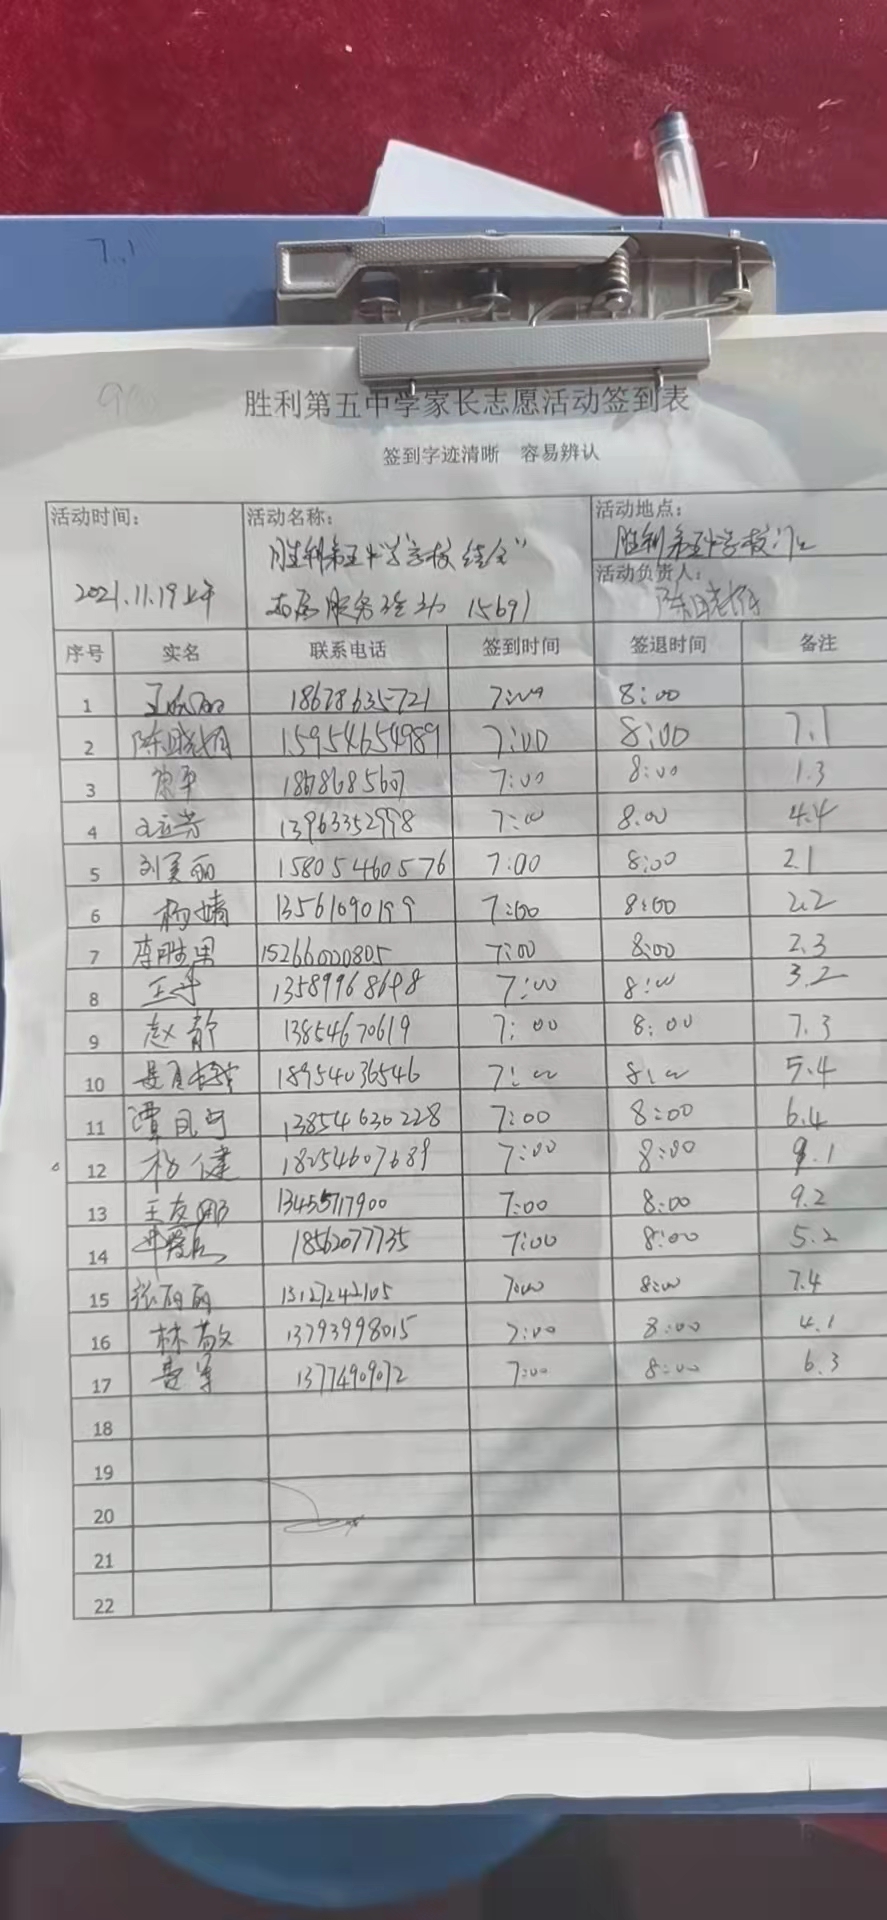 7.1
胜利第五中学家长志愿活动签到表
签到字迹清晰 容易辨认
活动时间: 活动名称: 活动地点:
胜利第五中学校门口
胜利第五中学"学校安全"
活动负责人:
2021.11.19上午 志愿服务活动 15691 陈晓娟
序号 实名 联系电话 签到时间 签退时间 备注
1 18678635721 7:00 8:00
2 陈晓娟 15954654989 7:00 8:00 7.1
3 7:00 8:00 1.3
4 13963352998 7:00 8:00 4.4
5 刘美丽 15805460576 7:00 8:00 2.1
6 杨婧 13561090199 7:00 8:00 2.2
7 李胜男 15266020805 7:00 8:00 2.3
8 13589968698 7:00 8:00 3.2
9 赵静 13854670619 7:00 8:00 7.3
10 18954036546 7:00 8:00 5.4
11 谭凤 13854630228 7:00 8:00 6.4
12 杨健 18254607689 7:00 8:00 9.1
13 王友娜 13455717900 7:00 8:00 9.2
14 18562077735 7:00 8:00 5.2
15 张丽丽 13127242105 7:00 8:00 7.4
16 林敬 13793998015 7:00 8:00 4.1
17 13774909072 7:00 8:00 6.3
18
19
20
21
22